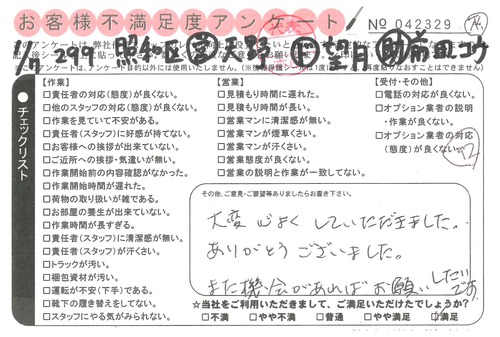 お客様不満足度アンケート
№ 042329
1/7 299 照和区 天野 望月 前田コウ
チェックリスト
【作業】
□責任者の対応(態度)が良くない。
□他のスタッフの対応(態度)が良くない。
□作業を見ていて不安がある。
□責任者(スタッフ)に好感が持てない。
□お客様への挨拶が出来ていない。
□ご近所への挨拶・気遣いが無い。
□作業開始前の内容確認がなかった。
□作業開始時間が遅れた。
□荷物の取り扱いが雑である。
□お部屋の養生が出来ていない。
□作業時間が長すぎる。
□責任者(スタッフ)に清潔感が無い。
□責任者(スタッフ)が汗くさい。
□トラックが汚い。
□梱包資材が汚い。
□運転が不安(下手)である。
□靴下の履き替えをしてない。
□スタッフにやる気がみられない。
【営業】
□見積もり時間に遅れた。
□見積もり時間が長い。
□営業マンに清潔感が無い。
□営業マンが煙草くさい。
□営業マンが汗くさい。
□営業態度が良くない。
□営業の説明と作業が一致してない。
【受付・その他】
□電話の対応が良くない。
□オプション業者の説明
・作業が良くない。
□オプション業者の対応
(態度)が良くない。
その他、ご意見・ご要望等ありましたらお書き下さい。
大変心よくしていただきました。
ありがとうございました。
また機会があればお願いしたいです。
☆当社をご利用いただきまして、ご満足いただけたでしょうか?
□不満 □やや不満 □普通 □やや満足 □満足